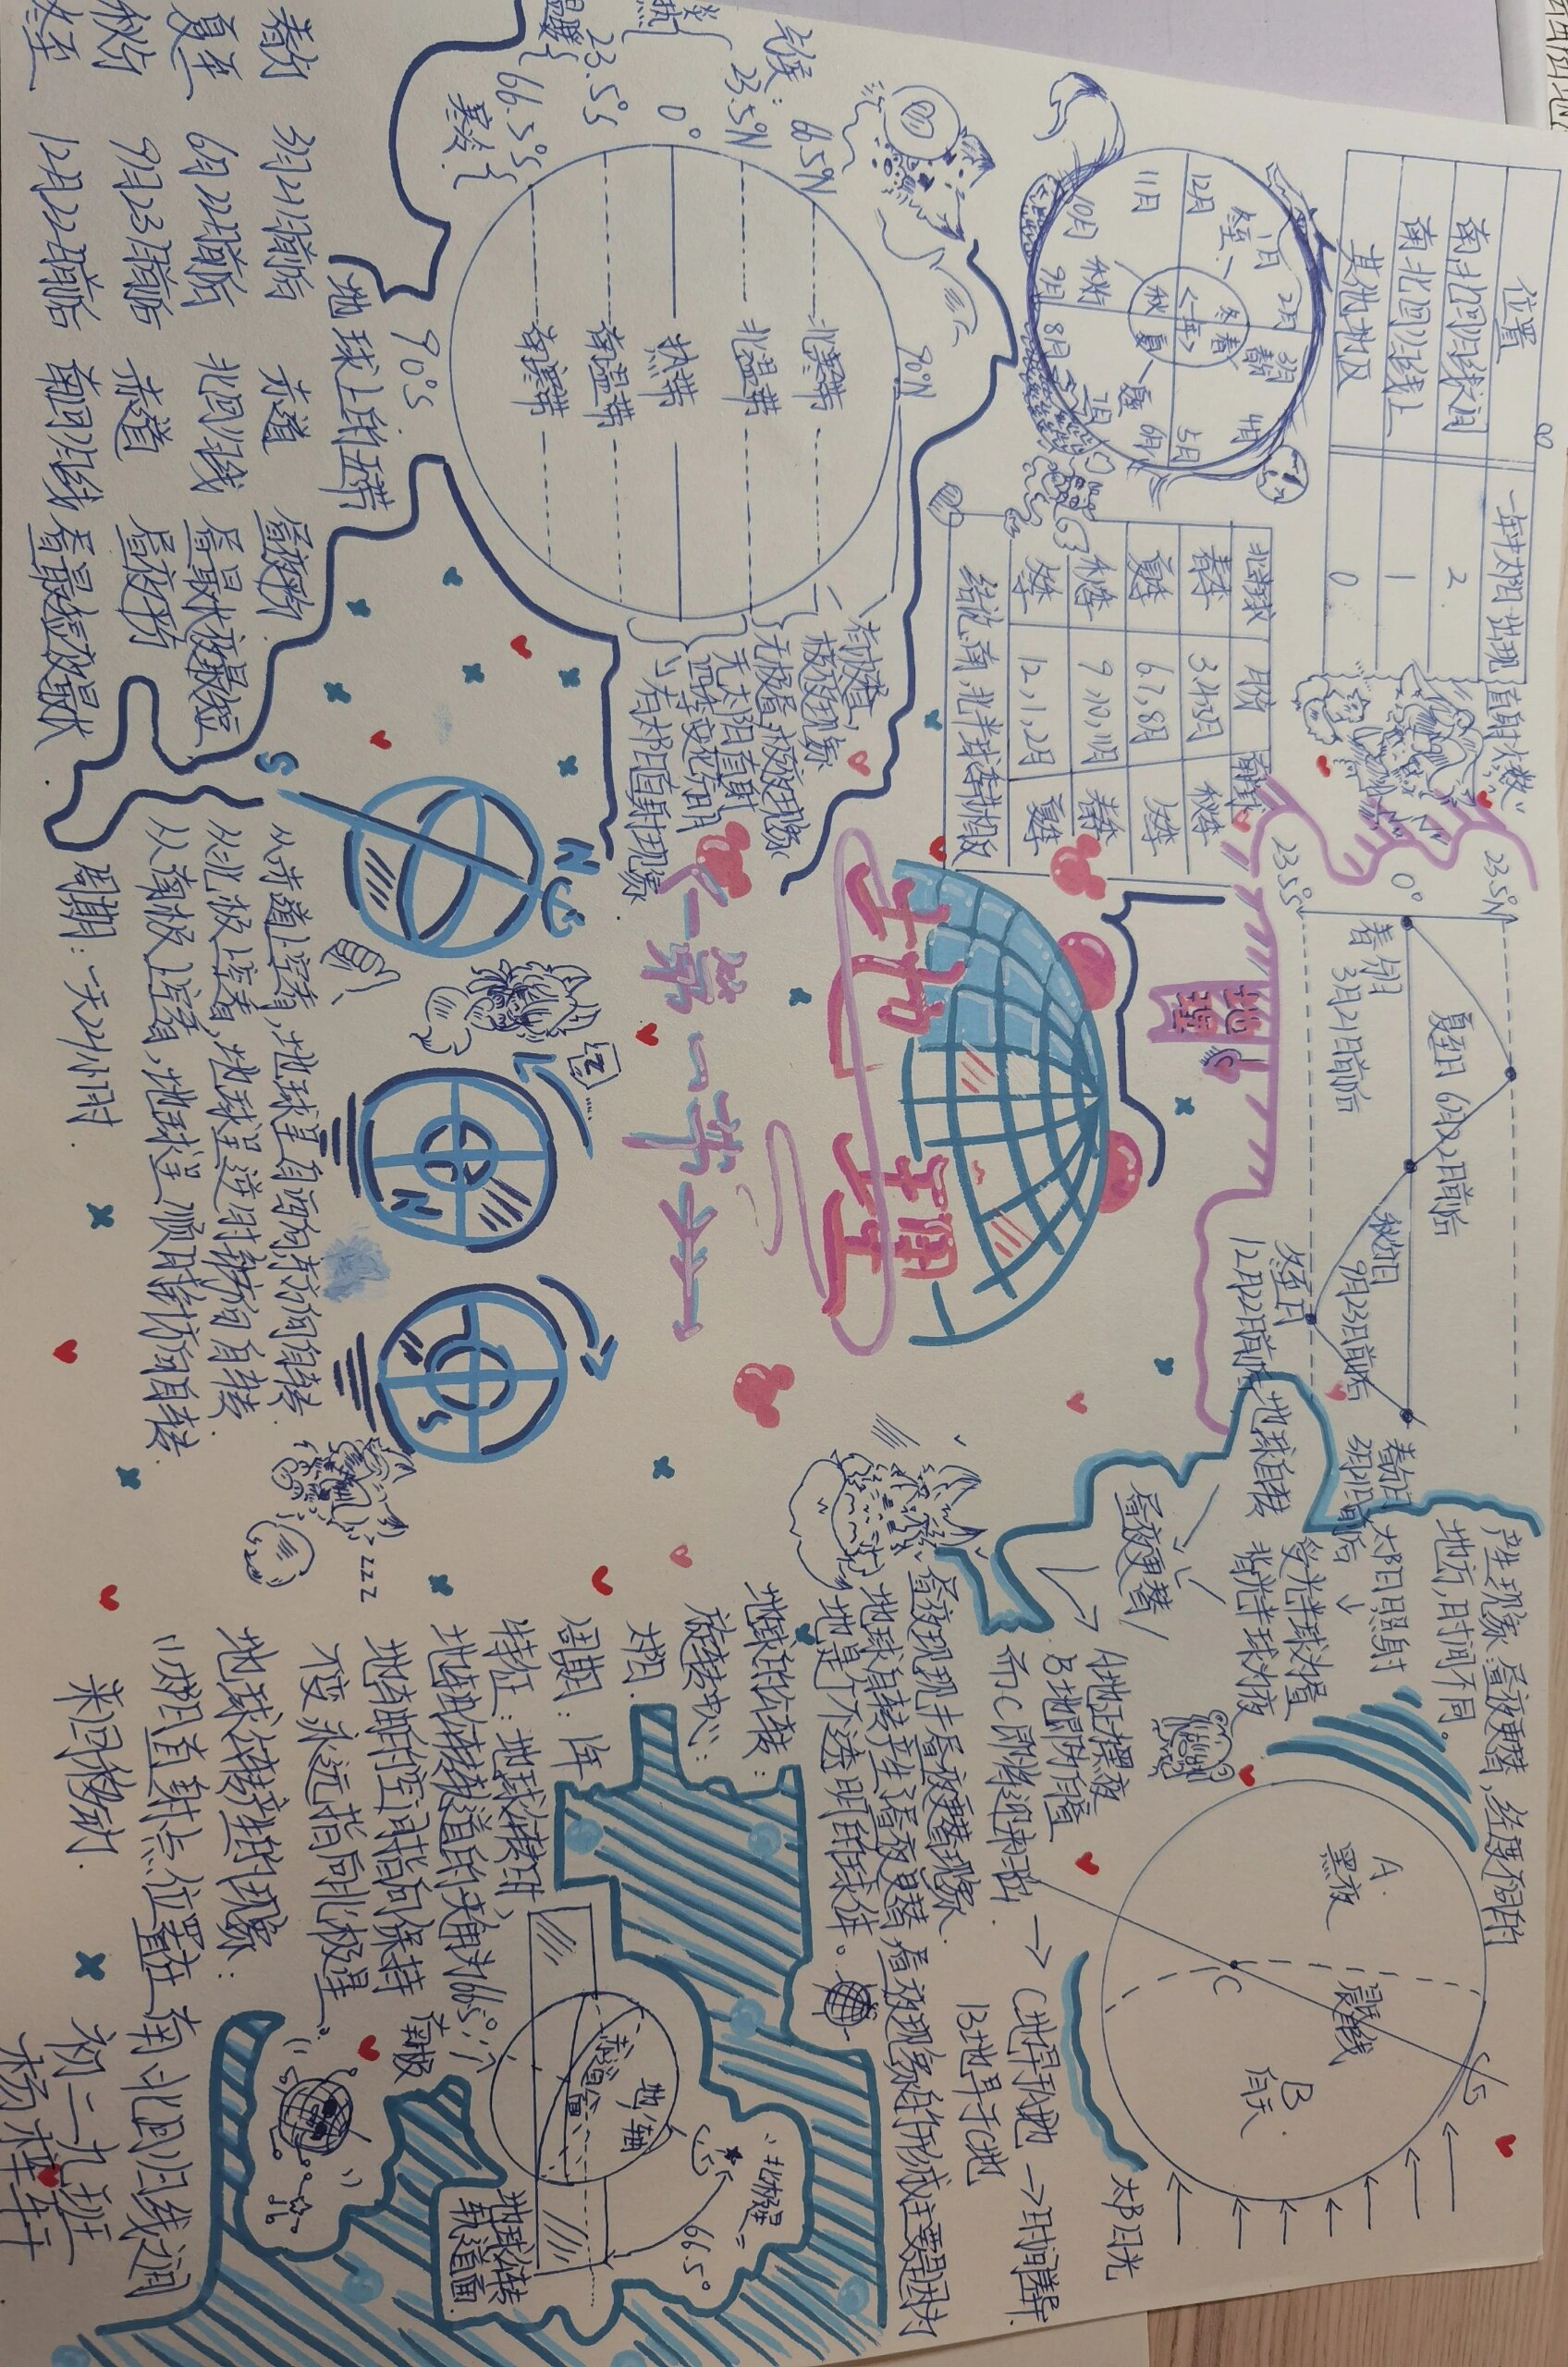 位置
一年中太阳
直射次数
南北回归线之间
2
南北回归线上
1
其他地区
0
12月
冬至
1月
2月
11月
冬
春
秋
夏
4月
10月
5月
9月
8月
7月
6月
北半球
月份
南半球
春季
3.4.5月
秋季
夏季
6.7.8月
冬季
秋季
9.10.11月
春季
冬季
12.1.2月
夏季
结论:南、北半球季节相反
23.5°N
0°
23.5°S
春分日
3月21日前后
夏至日 6月22日前后
秋分日
9月23日前后
冬至日
12月22日前后
春分日
3月21日前后
产生现象:昼夜更替,经度不同的
地方,时间不同。
地球自转
太阳照射
昼夜更替
受光半球为昼
背光半球为夜
A地正撰夜
B地阴所信澄
而C
C地早于A地
B地早于C地
时间差异
A
黑夜
晨昏线
C
B
白天
太阳光
昼夜更替现象
地球自转产生昼夜更替,昼夜现象的形成主要是因为
地是个不透明的球体。
地理
手抄
第一章 第一节
气候:
66.5°N
23.5°N
0°
23.5°S
66.5°S
90°N
90°S
炎热
温暖
寒冷
北寒带
北温带
热带
南温带
南寒带
有极昼,
极夜现象
无极昼,极夜现象
无太阳直射
四季变化分明
有太阳直射现象
地球上的五带
春分
3月21日前后
赤道
昼夜平分
夏至
6月22日前后
北回归线
昼最长夜最短
秋分
9月23日前后
赤道
昼夜平分
冬至
12月22日前后
南回归线
昼最短夜最长
S
N
N
S
zzz
从赤道上空看,地球呈自西向东方向自转.
从北极上空看,地球呈逆时针方向自转
从南极上空看,地球呈顺时针方向自转.
周期:一天24小时.
地球的公转:
旋转中心:
太阳.
周期:1年
特征:地球公转时,
地轴与公转轨道的夹角为66.5°;
地轴的空间指向保持
不变,永远指向北极星。
地球公转产生的现象:
(1)太阳直射点位置在南北回归线之间
来回移动.
赤道面
地轴
北极星
66.5°
地球公转
轨道面
南极
初二九班